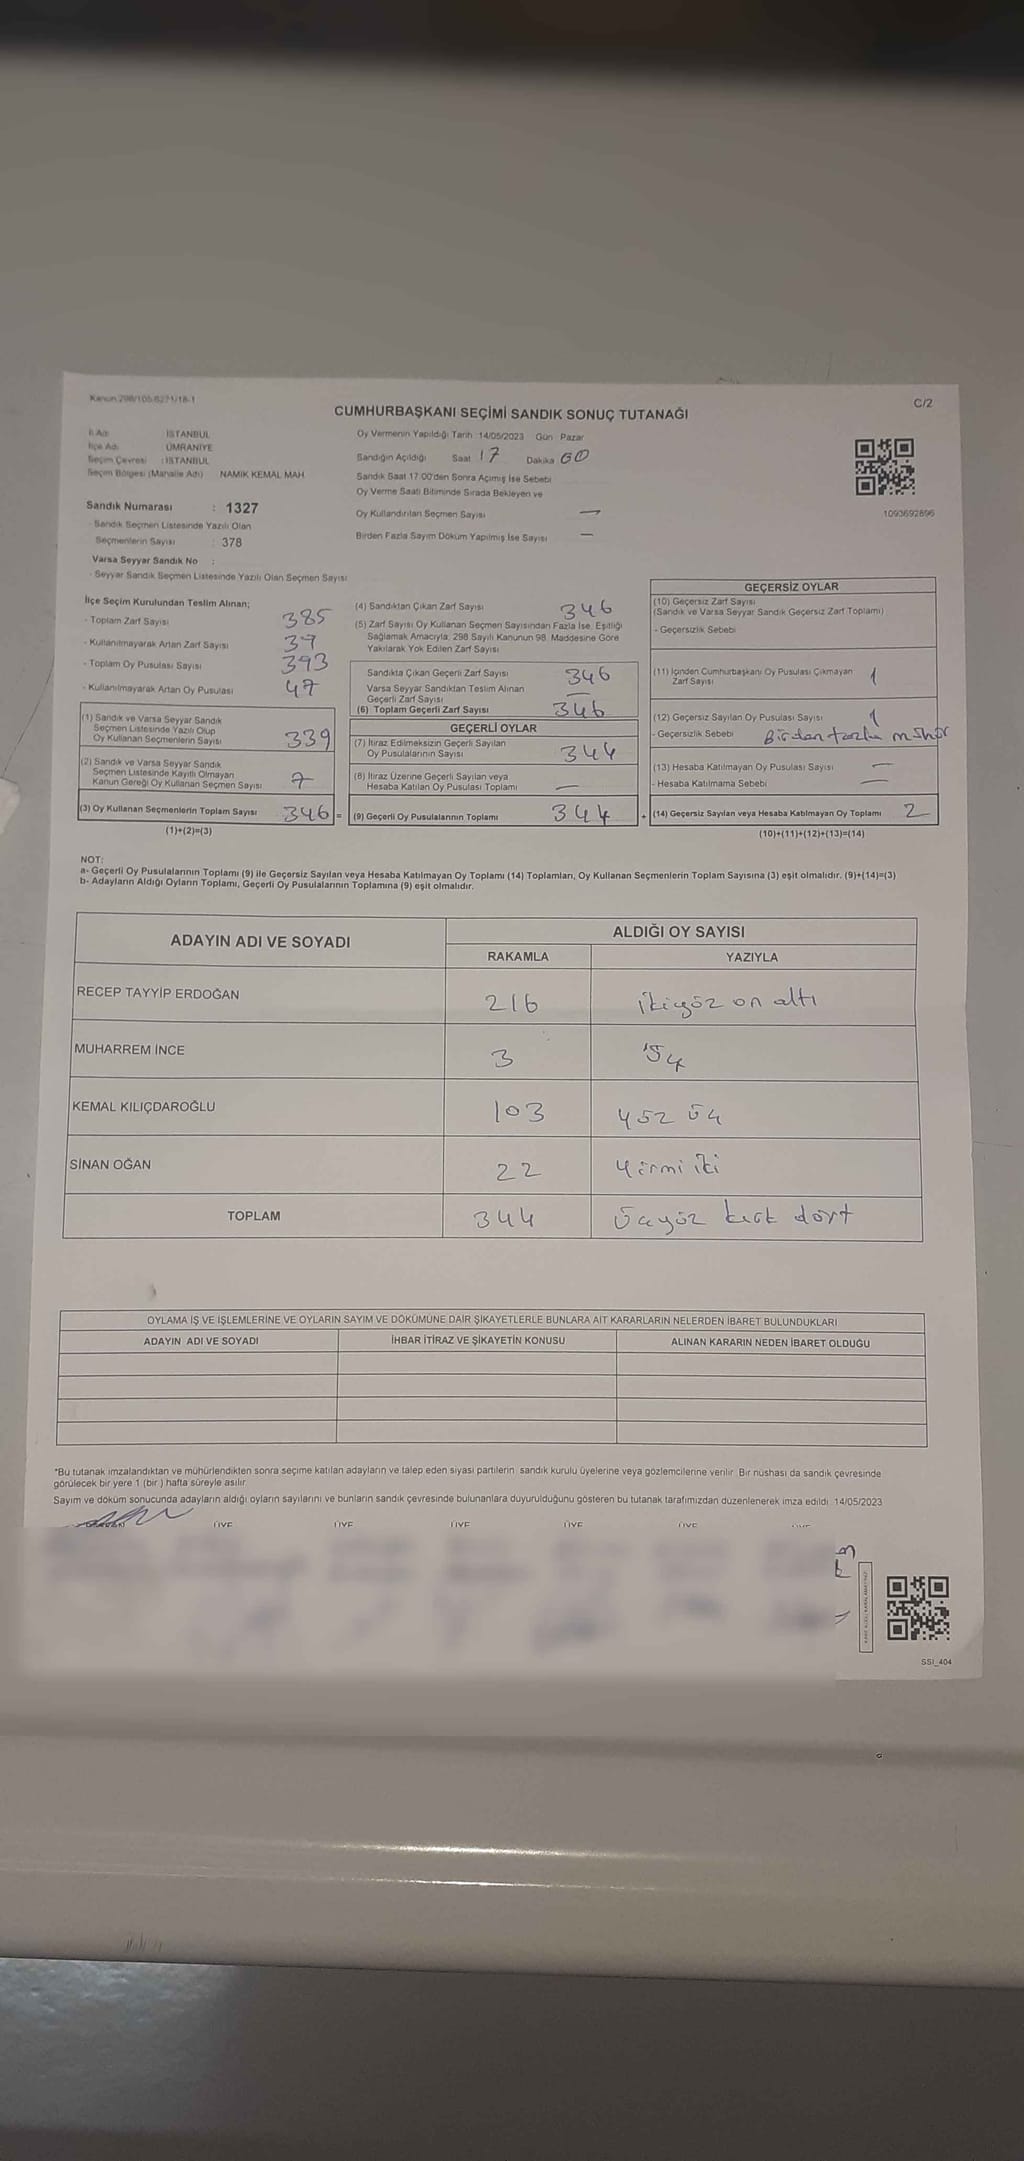 Kanun 298/105,6271/18-1
C/2
CUMHURBAŞKANI SEÇİMİ SANDIK SONUÇ TUTANAĞI
İl Adı : İSTANBUL
İlçe Adı : ÜMRANİYE
Seçim Çevresi : İSTANBUL
Seçim Bölgesi (Mahalle Adı) NAMIK KEMAL MAH
Sandık Numarası : 1327
- Sandık Seçmen Listesinde Yazılı Olan
Seçmenlerin Sayısı : 378
Varsa Seyyar Sandık No :
- Seyyar Sandık Seçmen Listesinde Yazılı Olan Seçmen Sayısı
Oy Vermenin Yapıldığı Tarih 14/05/2023 Gün Pazar
Sandığın Açıldığı Saat 17 Dakika 00
Sandık Saat 17.00'den Sonra Açılmış İse Sebebi
Oy Verme Saati Bitiminde Sırada Bekleyen ve
Oy Kullandırılan Seçmen Sayısı —
Birden Fazla Sayım Döküm Yapılmış İse Sayısı —
1093692896
İlçe Seçim Kurulundan Teslim Alınan;
- Toplam Zarf Sayısı 385
- Kullanılmayarak Artan Zarf Sayısı 39
- Toplam Oy Pusulası Sayısı 393
- Kullanılmayarak Artan Oy Pusulası 47
(1) Sandık ve Varsa Seyyar Sandık
Seçmen Listesinde Yazılı Olup
Oy Kullanan Seçmenlerin Sayısı 339
(2) Sandık ve Varsa Seyyar Sandık
Seçmen Listesinde Kayıtlı Olmayan
Kanun Gereği Oy Kullanan Seçmen Sayısı 7
(3) Oy Kullanan Seçmenlerin Toplam Sayısı 346 =
(1)+(2)=(3)
(4) Sandıktan Çıkan Zarf Sayısı 346
(5) Zarf Sayısı Oy Kullanan Seçmen Sayısından Fazla İse, Eşitliği
Sağlamak Amacıyla, 298 Sayılı Kanunun 98. Maddesine Göre
Yakılarak Yok Edilen Zarf Sayısı
Sandıkta Çıkan Geçerli Zarf Sayısı 346
Varsa Seyyar Sandıktan Teslim Alınan
Geçerli Zarf Sayısı —
(6) Toplam Geçerli Zarf Sayısı 346
GEÇERLİ OYLAR
(7) İtiraz Edilmeksizin Geçerli Sayılan
Oy Pusulalarının Sayısı 344
(8) İtiraz Üzerine Geçerli Sayılan veya
Hesaba Katılan Oy Pusulası Toplamı —
(9) Geçerli Oy Pusulalarının Toplamı 344 +
GEÇERSİZ OYLAR
(10) Geçersiz Zarf Sayısı
(Sandık ve Varsa Seyyar Sandık Geçersiz Zarf Toplamı)
- Geçersizlik Sebebi
(11) İçinden Cumhurbaşkanı Oy Pusulası Çıkmayan
Zarf Sayısı 1
(12) Geçersiz Sayılan Oy Pusulası Sayısı 1
- Geçersizlik Sebebi Birden fazla mühür
(13) Hesaba Katılmayan Oy Pusulası Sayısı —
- Hesaba Katılmama Sebebi —
(14) Geçersiz Sayılan veya Hesaba Katılmayan Oy Toplamı 2
(10)+(11)+(12)+(13)=(14)
NOT:
a- Geçerli Oy Pusulalarının Toplamı (9) ile Geçersiz Sayılan veya Hesaba Katılmayan Oy Toplamı (14) Toplamları, Oy Kullanan Seçmenlerin Toplam Sayısına (3) eşit olmalıdır. (9)+(14)=(3)
b- Adayların Aldığı Oyların Toplamı, Geçerli Oy Pusulalarının Toplamına (9) eşit olmalıdır.
ADAYIN ADI VE SOYADI
ALDIĞI OY SAYISI
RAKAMLA YAZIYLA
RECEP TAYYİP ERDOĞAN 216 ikiyüz on altı
MUHARREM İNCE 3 üç
KEMAL KILIÇDAROĞLU 103 yüz üç
SİNAN OĞAN 22 yirmi iki
TOPLAM 344 üçyüz kırk dört
OYLAMA İŞ VE İŞLEMLERİNE VE OYLARIN SAYIM VE DÖKÜMÜNE DAİR ŞİKAYETLERLE BUNLARA AİT KARARLARIN NELERDEN İBARET BULUNDUKLARI
ADAYIN ADI VE SOYADI İHBAR İTİRAZ VE ŞİKAYETİN KONUSU ALINAN KARARIN NEDEN İBARET OLDUĞU
*Bu tutanak imzalandıktan ve mühürlendikten sonra seçime katılan adayların ve talep eden siyasi partilerin sandık kurulu üyelerine veya gözlemcilerine verilir. Bir nüshası da sandık çevresinde
görülecek bir yere 1 (bir ) hafta süreyle asılır.
Sayım ve döküm sonucunda adayların aldığı oyların sayılarını ve bunların sandık çevresinde bulunanlara duyurulduğunu gösteren bu tutanak tarafımızdan düzenlenerek imza edildi. 14/05/2023
ÜYE ÜYE ÜYE ÜYE ÜYE
SSI_404